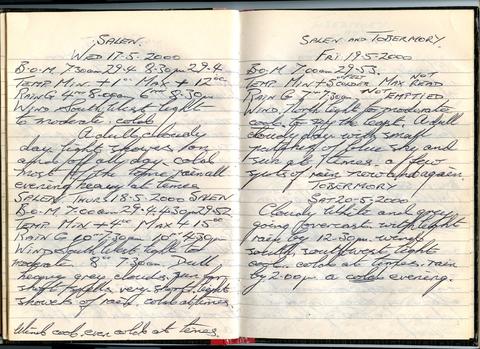 SALEN.
WED 17-5-2000
B-O-M. 7-30am 29.4. 8.30pm 29.4.
TEMP MIN + MAX + 12°C.
RAIN G 8-0pm 8-30pm
WIND South West light
to moderate. cold
A dull cloudy
day light showers on
and off all day. cold
most of the time rainfall
evening heavy at times
SALEN THURS 18-5-2000 SALEN
B-O-M. 7-00am 29.4. 4.30pm 29.52
TEMP MIN + 4°C MAX + 15°C
RAIN G 7.30am 4.30pm
WIND South West light to
moderate 7.30am. Dull
heavy grey clouds. sun for
short spells, very short, light
showers of rain. cold at times.
Wind cool even cold at times.
SALEN AND TOBERMORY.
FRI 19-5-2000
B-O-M. 7-00am 29.53.
TEMP MIN + 5 MAX NOT READ
RAIN G 7-30am NOT EMPTIED
WIND North light to moderate
cool, to say the least. A dull
cloudy day with small
patches of blue sky and
sun at times. a few
spots of rain now and again.
TOBERMORY
SAT 20-5-2000
Cloudy white and grey
going overcast with light
rain by 12-30pm. wind
south, south west light
cool. cold at times. rain
by 2:00pm a cold evening.